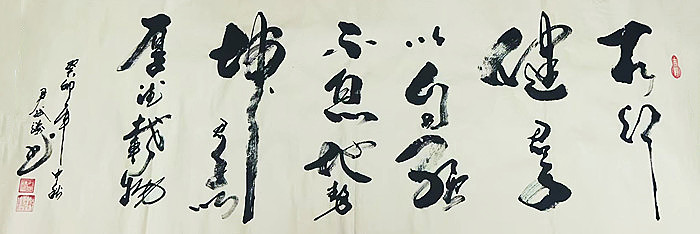 天行
健君子
以自强
不息地势
坤君子以
厚德载物
癸卯年中秋